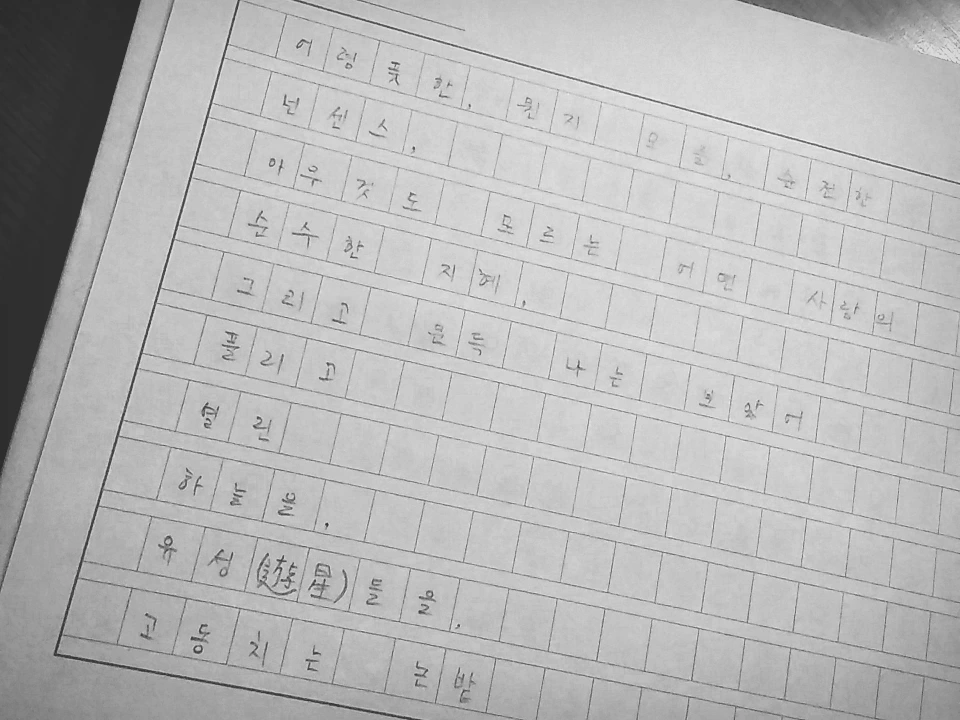 어렴풋한, 뭔지 모를, 순전한
넌센스,
아무것도 모르는 어떤 사람의
순수한 지혜,
그리고 문득 나는 보았어
풀리고
열린
하늘을,
유성(遊星)들을,
고동치는 논밭